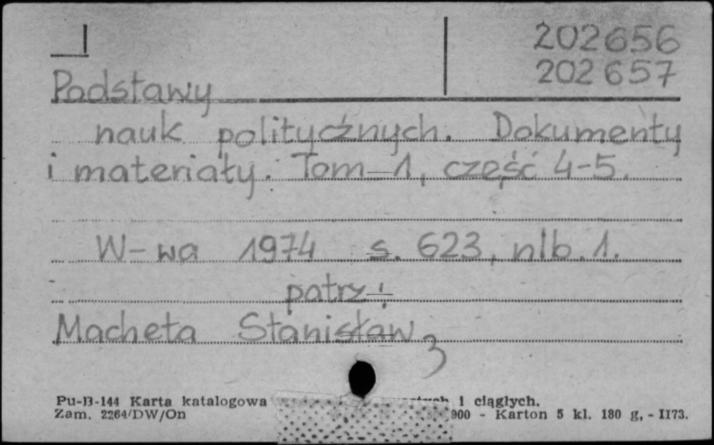 I 202656
202657
Podstawy
nauk politycznych. Dokumenty
i materiały. Tom 1, część 4-5.
W-wa 1974 s. 623, nlb. 1.
patrz:
Macheta Stanisław
3
Pu-B-144 Karta katalogowa i ciągłych.
Zam. 2264/DW/On 900 - Karton 5 kl. 180 g, - II73.